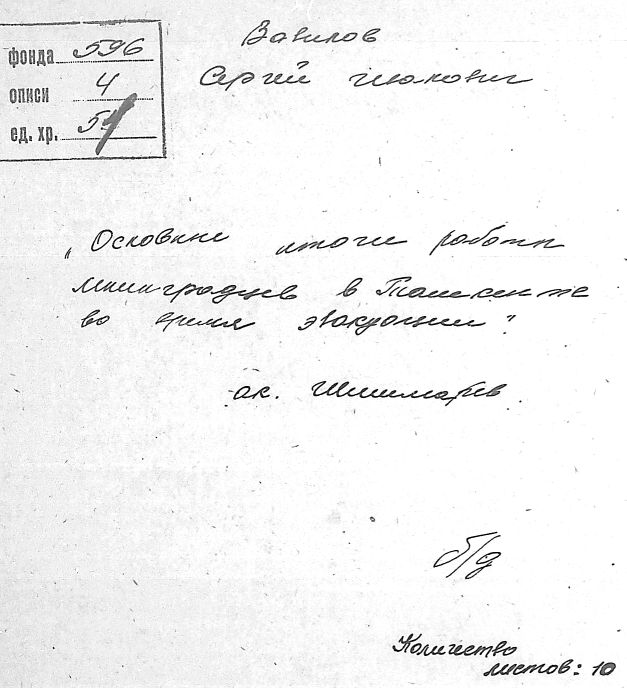 фонда 596
описи 4
ед. хр.
Вавилов
Сергей Иванович
„Основные итоги работы
ленинградцев в Ташкенте
во время эвакуации"
ак. Шишмарев
б/д
Количество
листов: 10